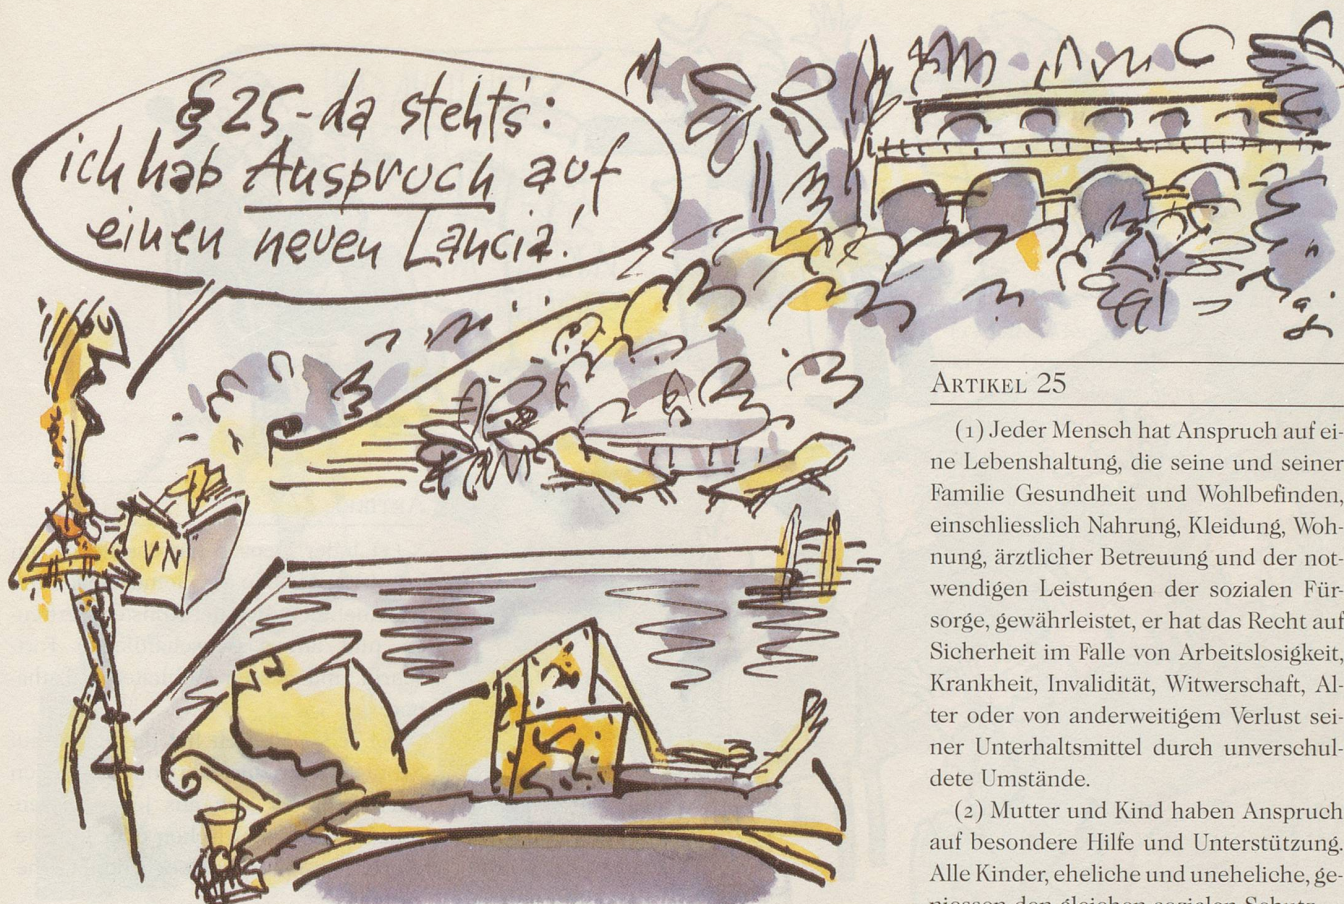 §25-da steht's:
ich hab Anspruch auf
einen neuen Lancia!
VN
ARTIKEL 25
(1) Jeder Mensch hat Anspruch auf ei-
ne Lebenshaltung, die seine und seiner
Familie Gesundheit und Wohlbefinden,
einschliesslich Nahrung, Kleidung, Woh-
nung, ärztlicher Betreuung und der not-
wendigen Leistungen der sozialen Für-
sorge, gewährleistet, er hat das Recht auf
Sicherheit im Falle von Arbeitslosigkeit,
Krankheit, Invalidität, Witwerschaft, Al-
ter oder von anderweitigem Verlust sei-
ner Unterhaltsmittel durch unverschul-
dete Umstände.
(2) Mutter und Kind haben Anspruch
auf besondere Hilfe und Unterstützung.
Alle Kinder, eheliche und uneheliche, ge-
niessen den gleichen sozialen Schutz.